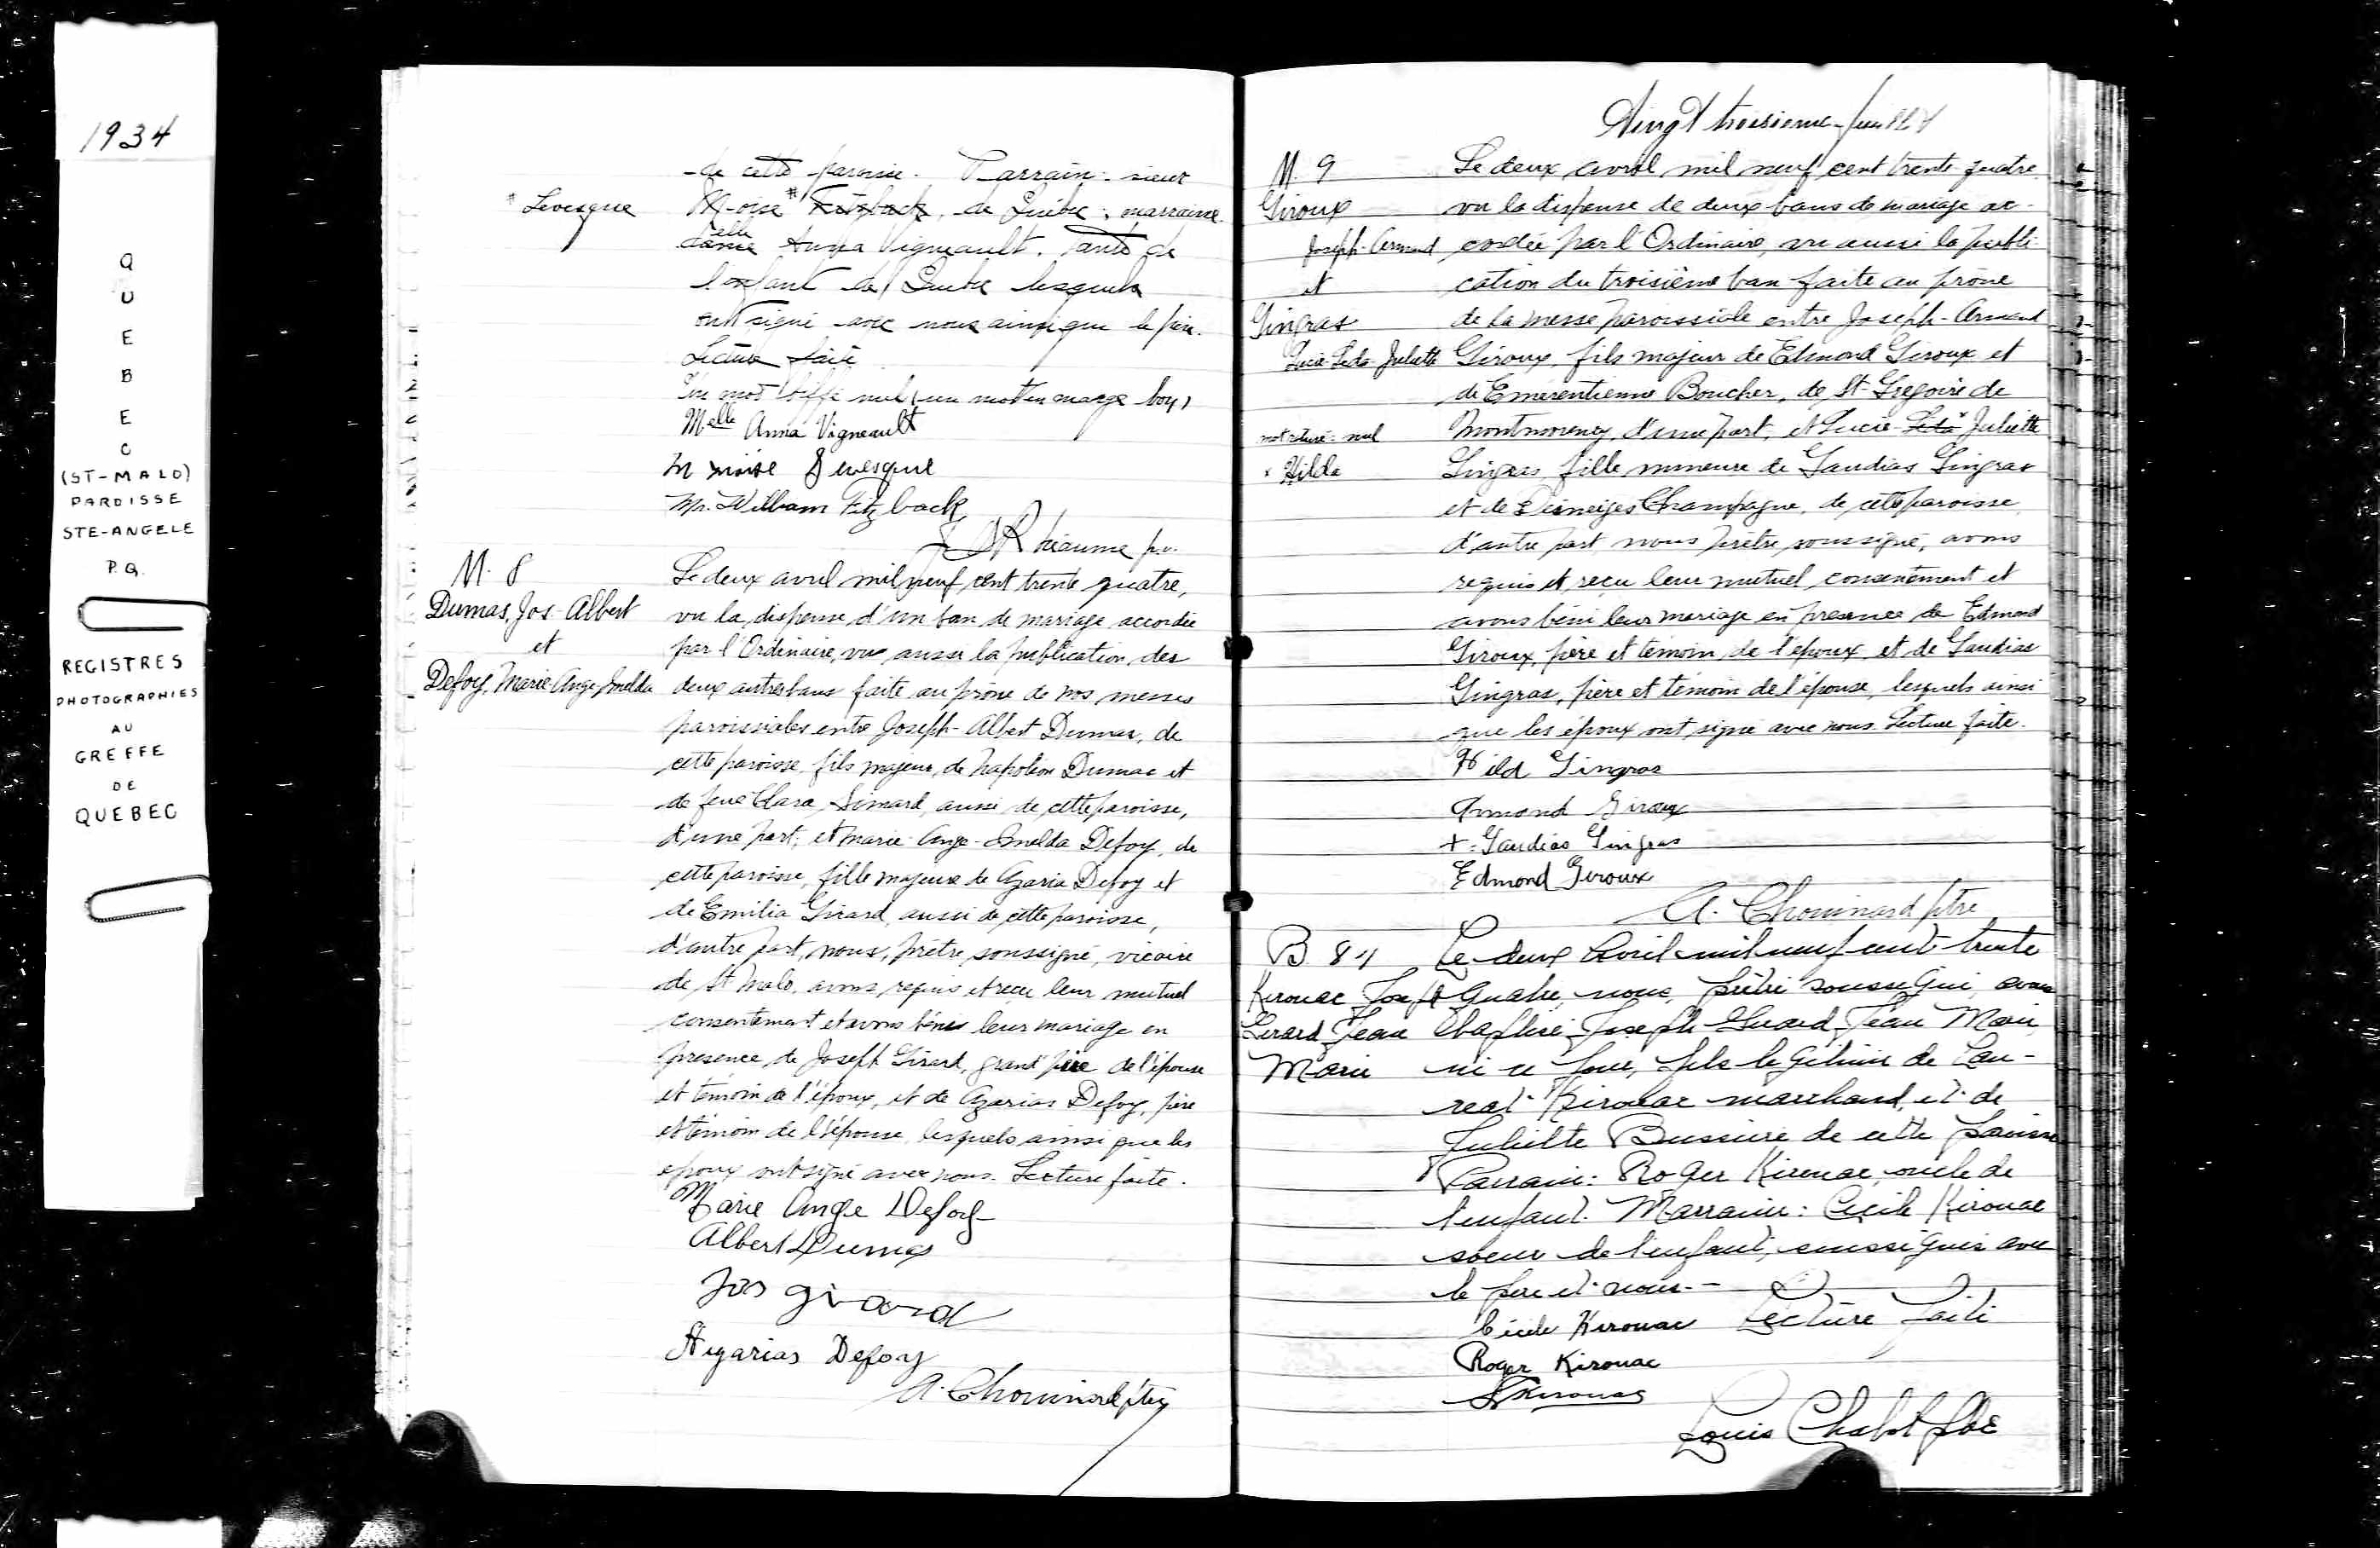 1934
Q
U
E
B
E
C
(ST-MALO)
PAROISSE
STE-ANGELE
P.Q.
REGISTRES
PHOTOGRAPHIES
AU
GREFFE
DE
QUEBEC
de cette paroisse. Parrain: sieur
* Levesque
Moise * Fitzback, de Québec; marraine
dame elle Anna Vigneault, tante de
l'enfant de Québec lesquels
ont signé avec nous ainsi que le père.
Lecture faite
Un mot biffé nul, un mot en marge bon,
Melle Anna Vigneault
M moise Levesque
Mr. William Fitzback
Rhéaume p.v.
M. 8
Dumas, Jos. Albert
et
Defoy, Marie-Ange-Imelda
Le deux avril mil neuf cent trente quatre,
vu la dispense d'un ban de mariage accordée
par l'Ordinaire, vu aussi la publication des
deux autres bans faite au prône de nos messes
paroissiales entre Joseph-Albert Dumas, de
cette paroisse, fils majeur de Napoléon Dumas et
de feue Clara Simard, aussi de cette paroisse,
d'une part; et Marie-Ange-Imelda Defoy, de
cette paroisse, fille majeure de Azaria Defoy et
de Emilia Girard, aussi de cette paroisse,
d'autre part, nous, prêtre, soussigné, vicaire
de St Malo, avons requis et reçu leur mutuel
consentement et avons béni leur mariage en
présence de Joseph Girard, grand'père de l'épouse
et témoin de l'époux, et de Azarias Defoy, père
et témoin de l'épouse, lesquels ainsi que les
époux ont signé avec nous. Lecture faite.
Marie Ange Defoy
Albert Dumas
Jos girard
Azarias Defoy
A. Chouinard ptre
Vingt troisieme feuillet
M. 9
Giroux
Joseph-Armand
et
Gingras
Lucie-Leda-Juliette
mot raturé: nul
* Hilda
Le deux avril mil neuf cent trente quatre
vu la dispense de deux bans de mariage ac-
cordée par l'Ordinaire, vu aussi la publi-
cation du troisième ban faite au prône
de la messe paroissiale entre Joseph-Armand
Giroux, fils majeur de Edmond Giroux et
de Emerentienne Boucher, de St-Grégoire de
Montmorency, d'une part, et Lucie-Léda* Juliette
Gingras, fille mineure de Gaudias Gingras
et de Déneiges Champagne, de cette paroisse,
d'autre part, nous prêtre soussigné, avons
requis et reçu leur mutuel consentement et
avons béni leur mariage en présence de Edmond
Giroux, père et témoin de l'époux et de Gaudias
Gingras, père et témoin de l'épouse, lesquels ainsi
que les époux ont signé avec nous. Lecture faite.
Hild Gingras
Armand Giroux
+ Gaudias Gingras
Edmond Giroux
A. Chouinard ptre
B. 84
Kirouac Joseph
Gérard Jean
Marie
Le deux Avril mil neuf cent trente
Quatre, nous, prêtre soussigné, avons
Baptisé Joseph Gérard Jean Marie
né ce jour, fils légitime de Lau-
réat Kirouac marchand, et de
Juliette Bussière de cette paroisse
Parrain: Roger Kirouac, oncle de
l'enfant. Marraine: Cécile Kirouac
soeur de l'enfant, soussignés avec
le père et nous.-
Cécile Kirouac Lecture Faite
Roger Kirouac
Kirouac
Louis Chabot ptre